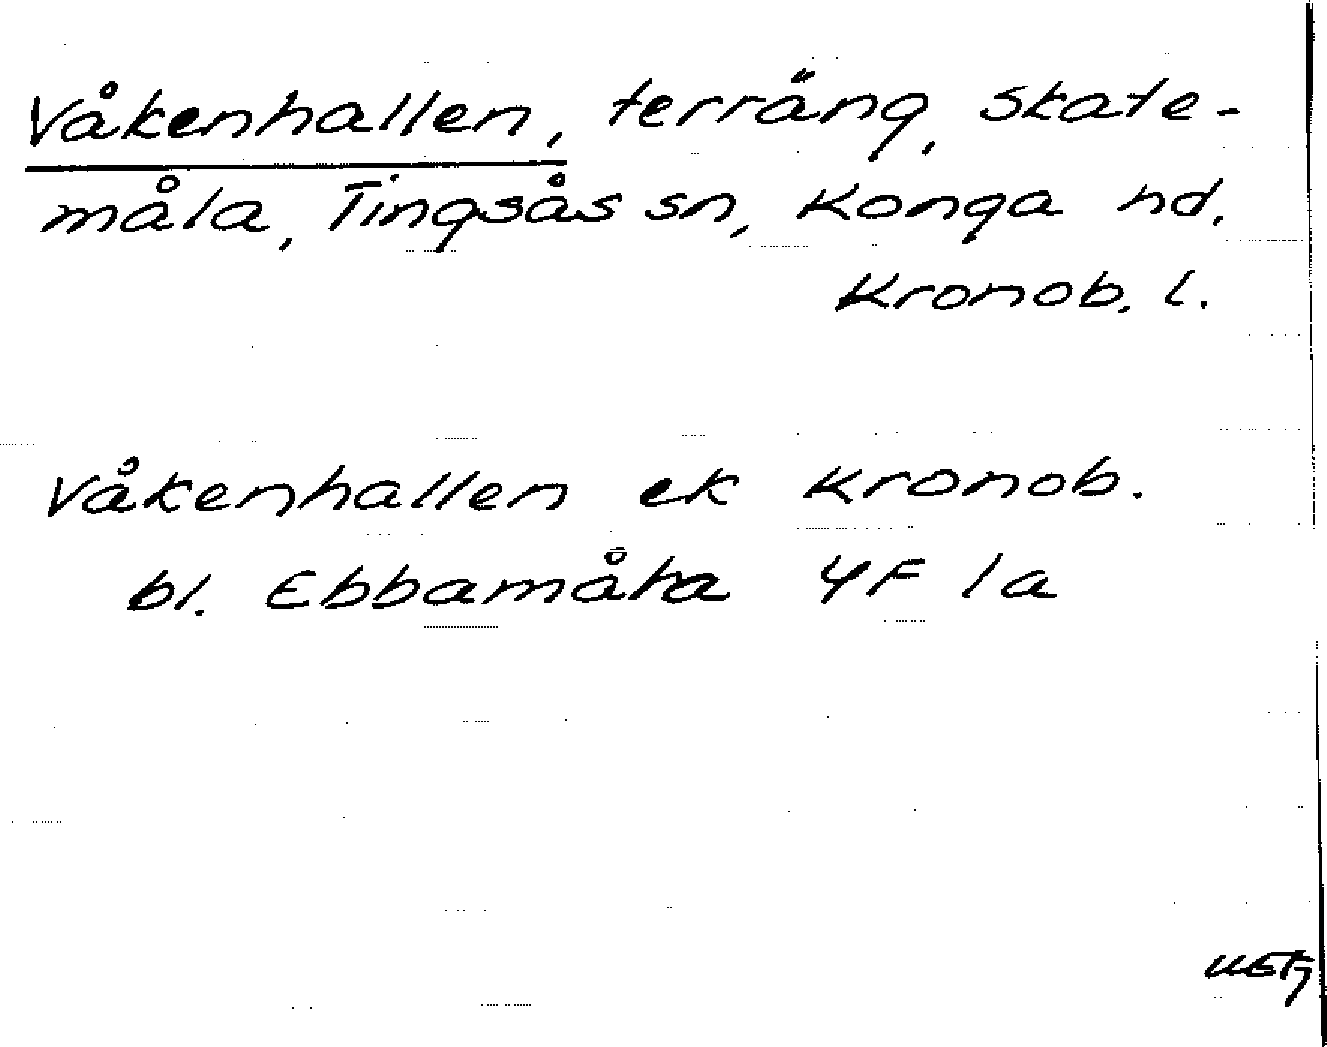 Våkenhallen, terräng, Skate-
måla, Tingsås sn, Konga hd.
Kronob. l.
Våkenhallen ek Kronob.
bl. Ebbamåla 4F 1a